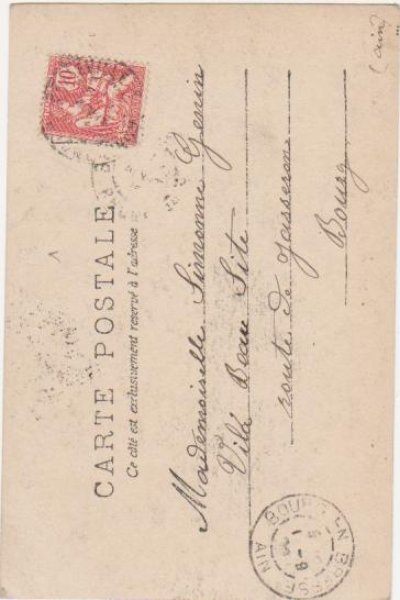 CARTE POSTALE
Ce côté est exclusivement réservé à l'adresse
Mademoiselle Simonne Genin
Villa Beau Site
route de Jasseron
Bourg
(Ain)
10
BOURG EN BRESSE
AIN